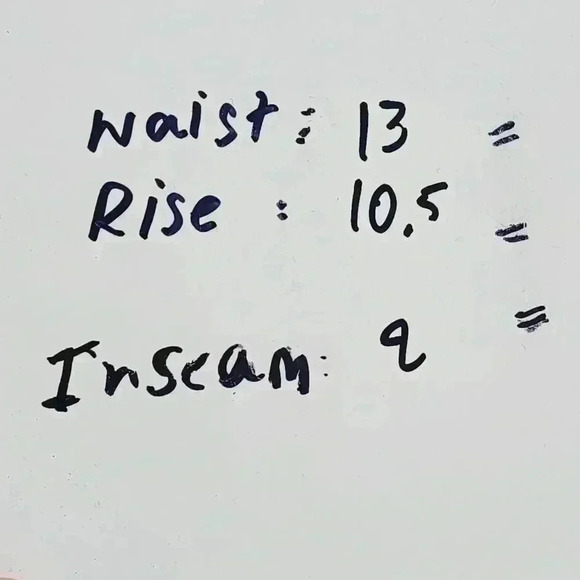 Waist: 13 "
Rise : 10.5 "
Inseam: 9 "